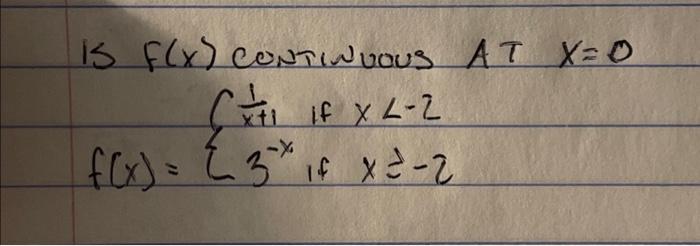 IS f(x) CONTINUOUS AT X=0
f(x) = { 1/(x+1) if x < -2
3^-x if x ≥ -2